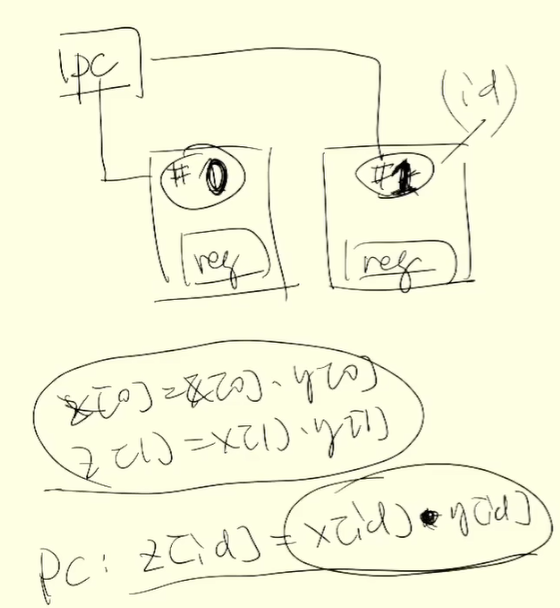 pc
(id)
#0
#1
reg
reg
z[0]=x[0]·y[0]
z[1]=x[1]·y[1]
pc: z[id]=x[id]·y[id]